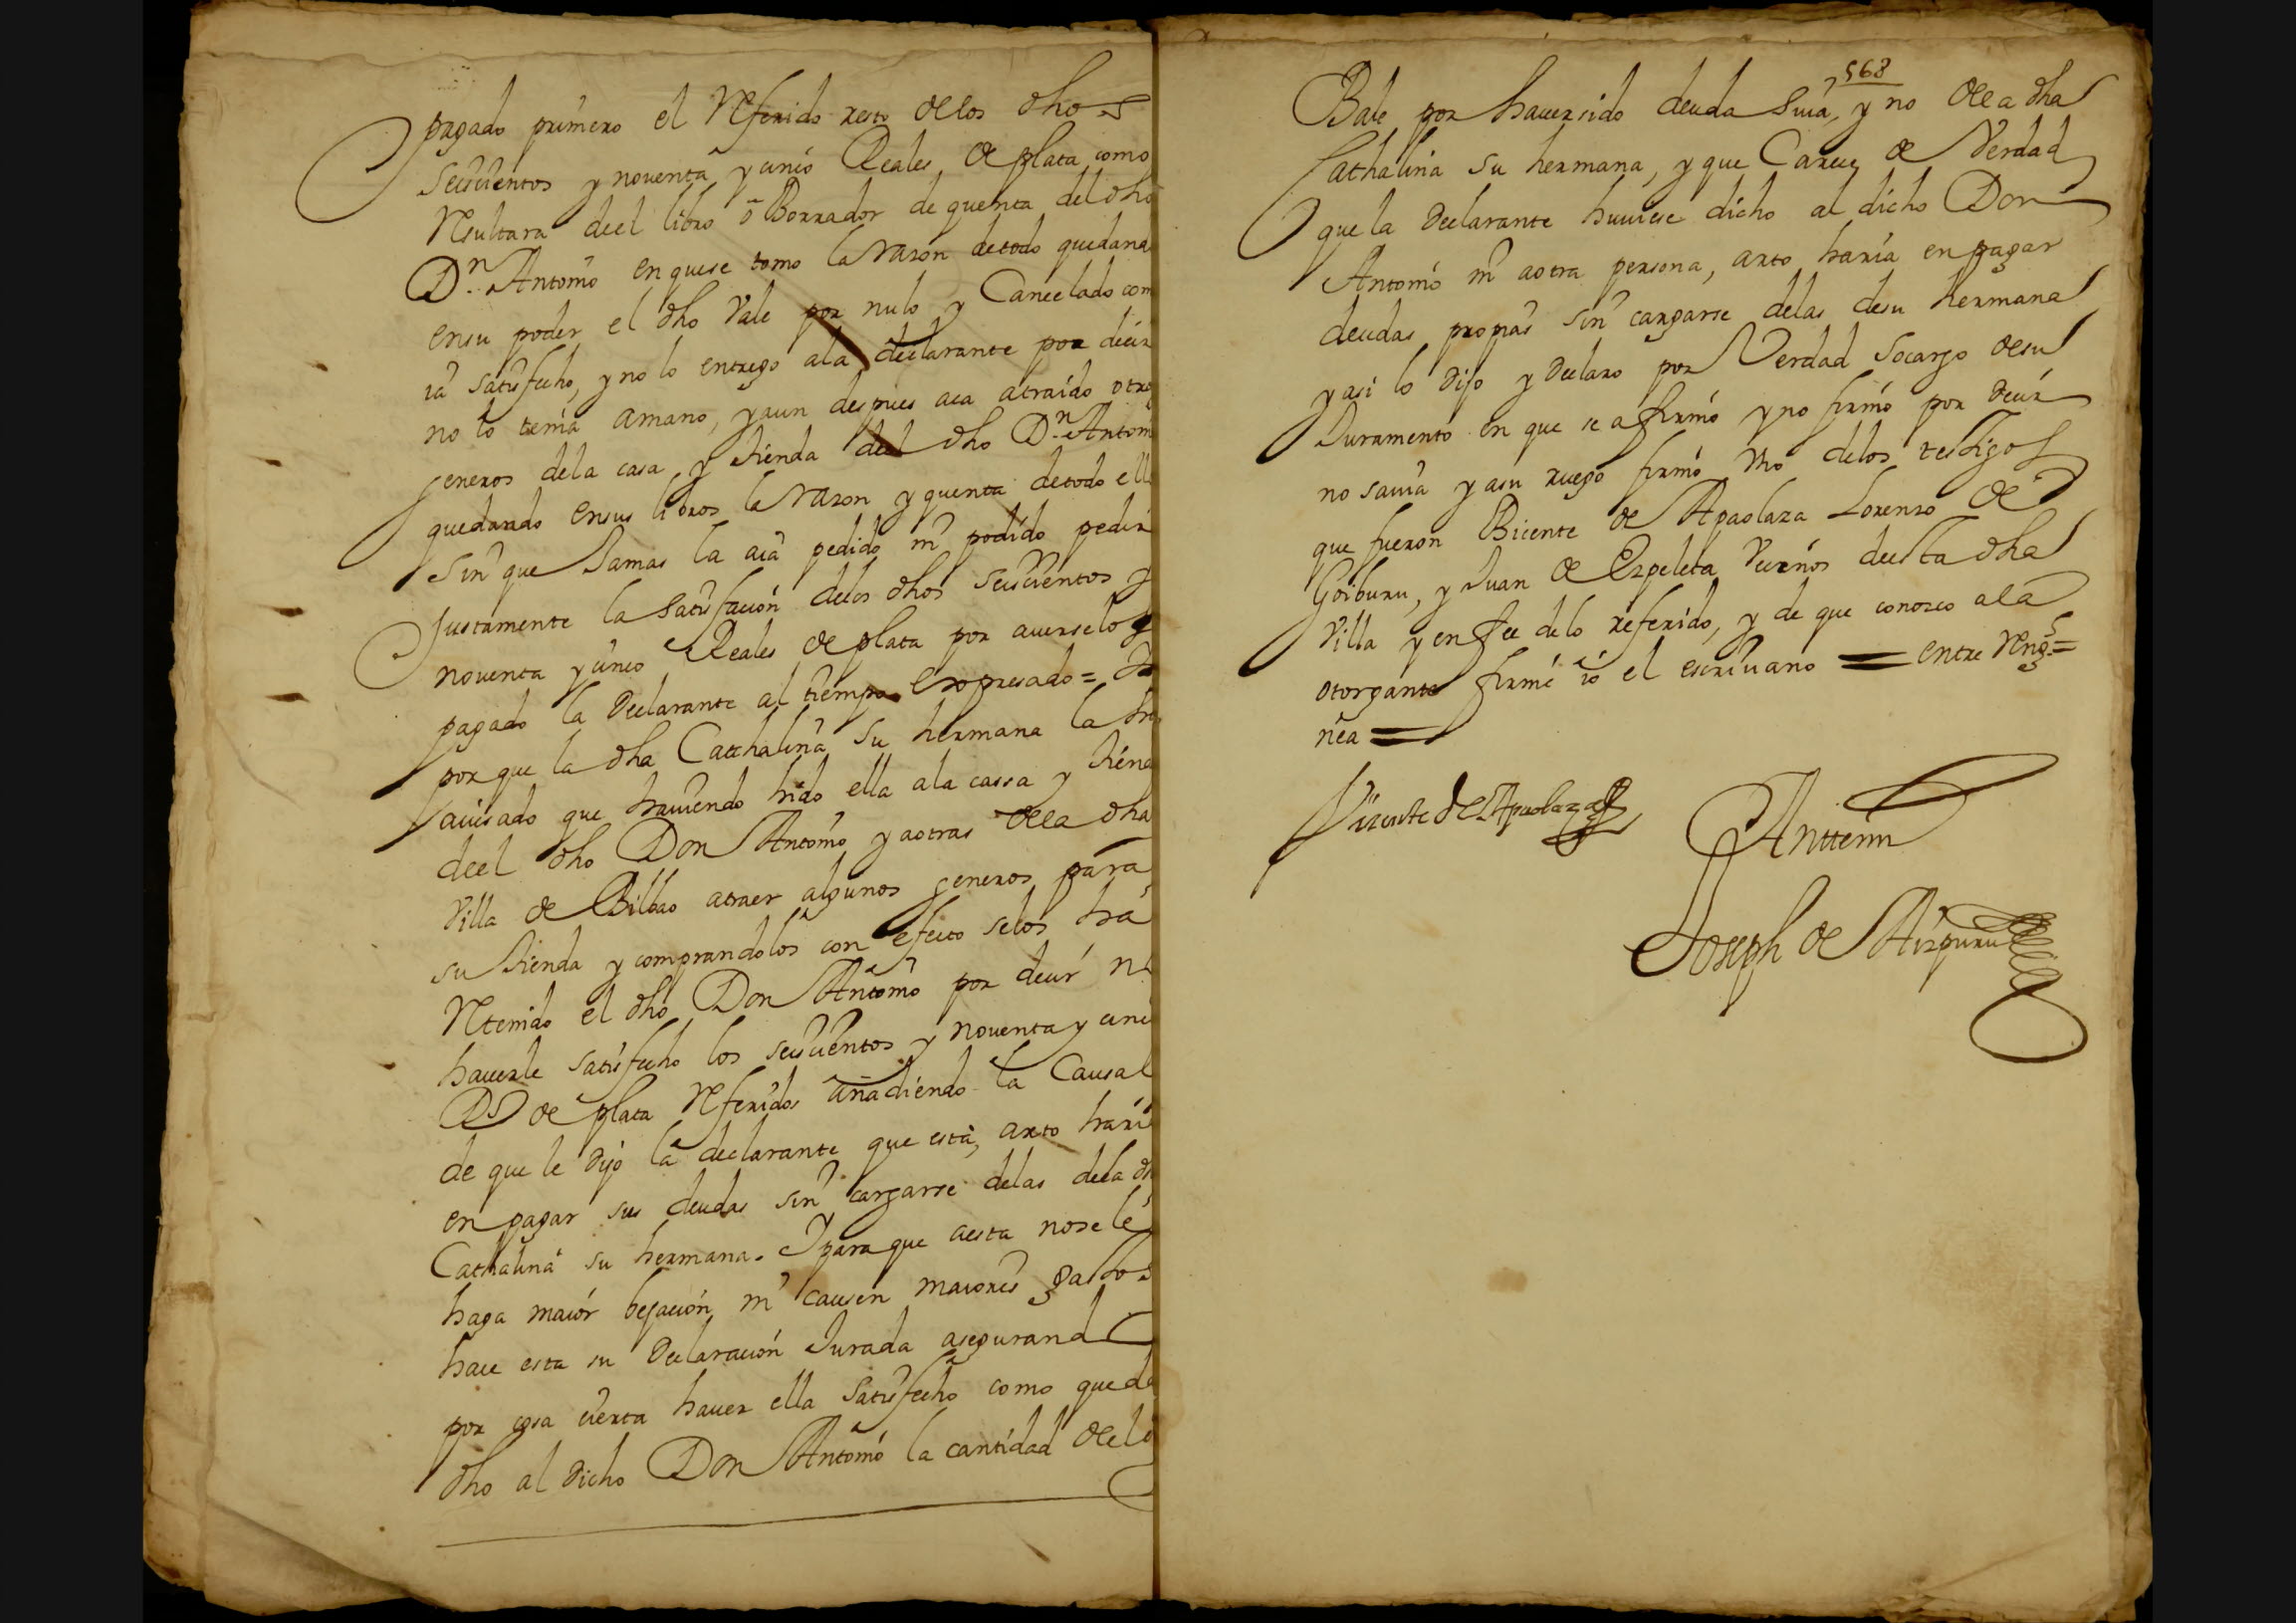 pagado primero el Referido resto de los dhos
seiscientos y noventa y cinco Reales de plata como
Resultara deel libro ô Borrador de quenta del dho
Dn. Antonio en que se tomo la razon de todo quedand
en su poder el dho Vale por nulo y Cancelado com
ia satisfecho, y no lo entrego a la declarante por decir
no lo tenia a mano, y aun despues aca a traido otro
generos de la casa y tienda deel dho Dn. Antoni
quedando en sus libros la razon y quenta de todo ello
sin que Jamas la aia pedido ni podido pedir
Justamente la satisfacion de los dhos seiscientos y
noventa y cinco Reales de plata por averselos
pagado la Declarante al tiempo expresado =
por que la dha Catthalina su hermana la ha
avisado que haviendo hido ella a la cassa y tiend
deel dho Don Antonio y a otras de la dha
Villa de Bilbao a traer algunos generos para
su tienda y comprandolos con efecto se los ha
Retenido el dho Don Antonio por decir n
haverle satisfecho los seiscientos y noventa y cinc
Rs de plata Referidos añadiendo la Causal
de que le dijo la declarante que esta, arto hari
en pagar sus deudas sin cargarse de las de la dh
Cathalina su hermana. Y para que a esta no se le
haga maior bejacion ni causen maiores gastos
hace esta su Declaracion Jurada asegurand
por cosa cierta haver ella satisfecho como queda
dho al dicho Don Antonio la cantidad de el
568
Bale por haver sido deuda suia, y no de la dha
Cathalina su hermana, y que Carece de Verdad
que la Declarante huviese dicho al dicho Don
Antonio ni a otra persona, arto haria en pagar
deudas propias sin cargarse de las de su hermana
y asi lo dijo y Declaro por Verdad so cargo de su
Juramento en que se affirmó y no firmó por decir
no savia y a su ruego firmó Uno de los testigos
que fueron Bicente de Apaolaza Lorenzo de
Goiburu, y Juan de Ezpeleta Vecinos de esta dha
Villa y en fee de lo referido, y de que conozco a la
otorgante firmé io el escrivano = entre Rengs =
nia =
Vicente de Apaolaza
Anttemi
Joseph de Aizpuru